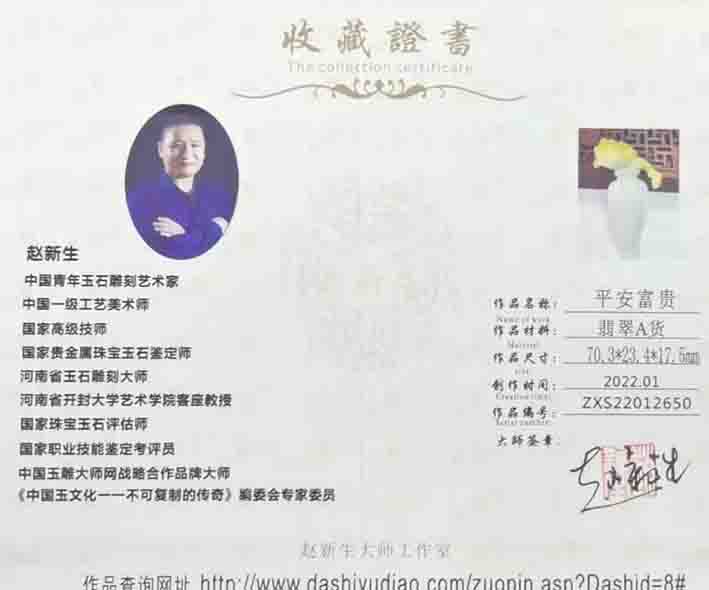 收藏證書
The collection certificate
赵新生
中国青年玉石雕刻艺术家
中国一级工艺美术师
国家高级技师
国家贵金属珠宝玉石鉴定师
河南省玉石雕刻大师
河南省开封大学艺术学院客座教授
国家珠宝玉石评估师
国家职业技能鉴定考评员
中国玉雕大师网战略合作品牌大师
《中国玉文化一一不可复制的传奇》编委会专家委员
作品名称: 平安富贵
Name of work
作品材料: 翡翠A货
Material
作品尺寸: 70.3*23.4*17.5mm
size
创作时间: 2022.01
Creation time
作品编号: ZXS22012650
Serial number
大师签章:
赵新生
赵新生大师工作室
作品查询网址 http://www.dashiyudiao.com/zuopin.asp?Dashid=8#